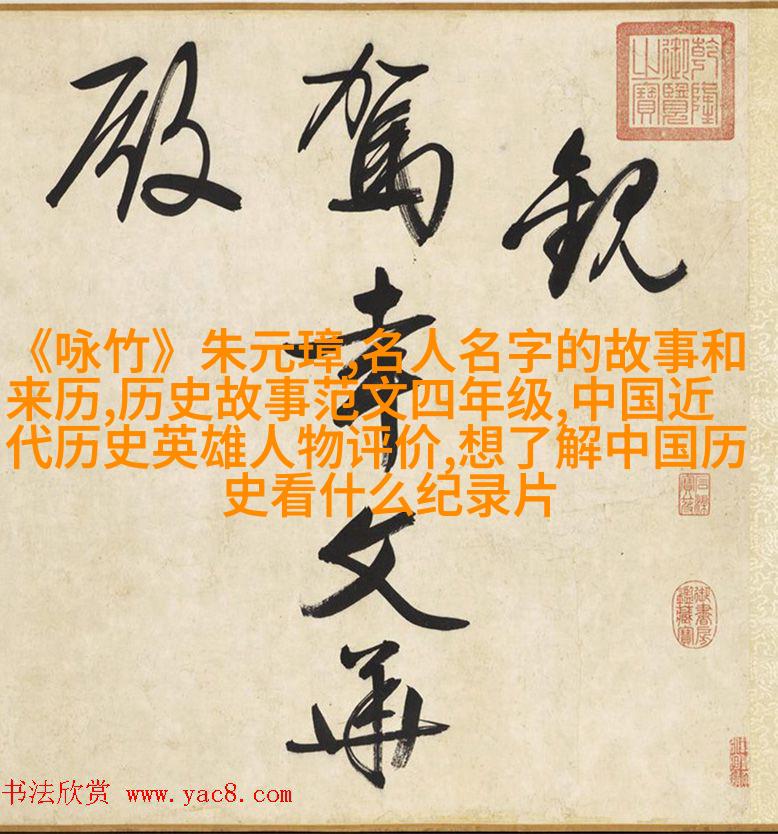 觀
駕幸文華
殿
乾隆御覽之寶
石渠寶笈
御書房鑑藏寶
《咏竹》朱元璋,名人名字的故事和
来历,历史故事范文四年级,中国近
代历史英雄人物评价,想了解中国历
史看什么纪录片
书法欣赏 www.yac8.com